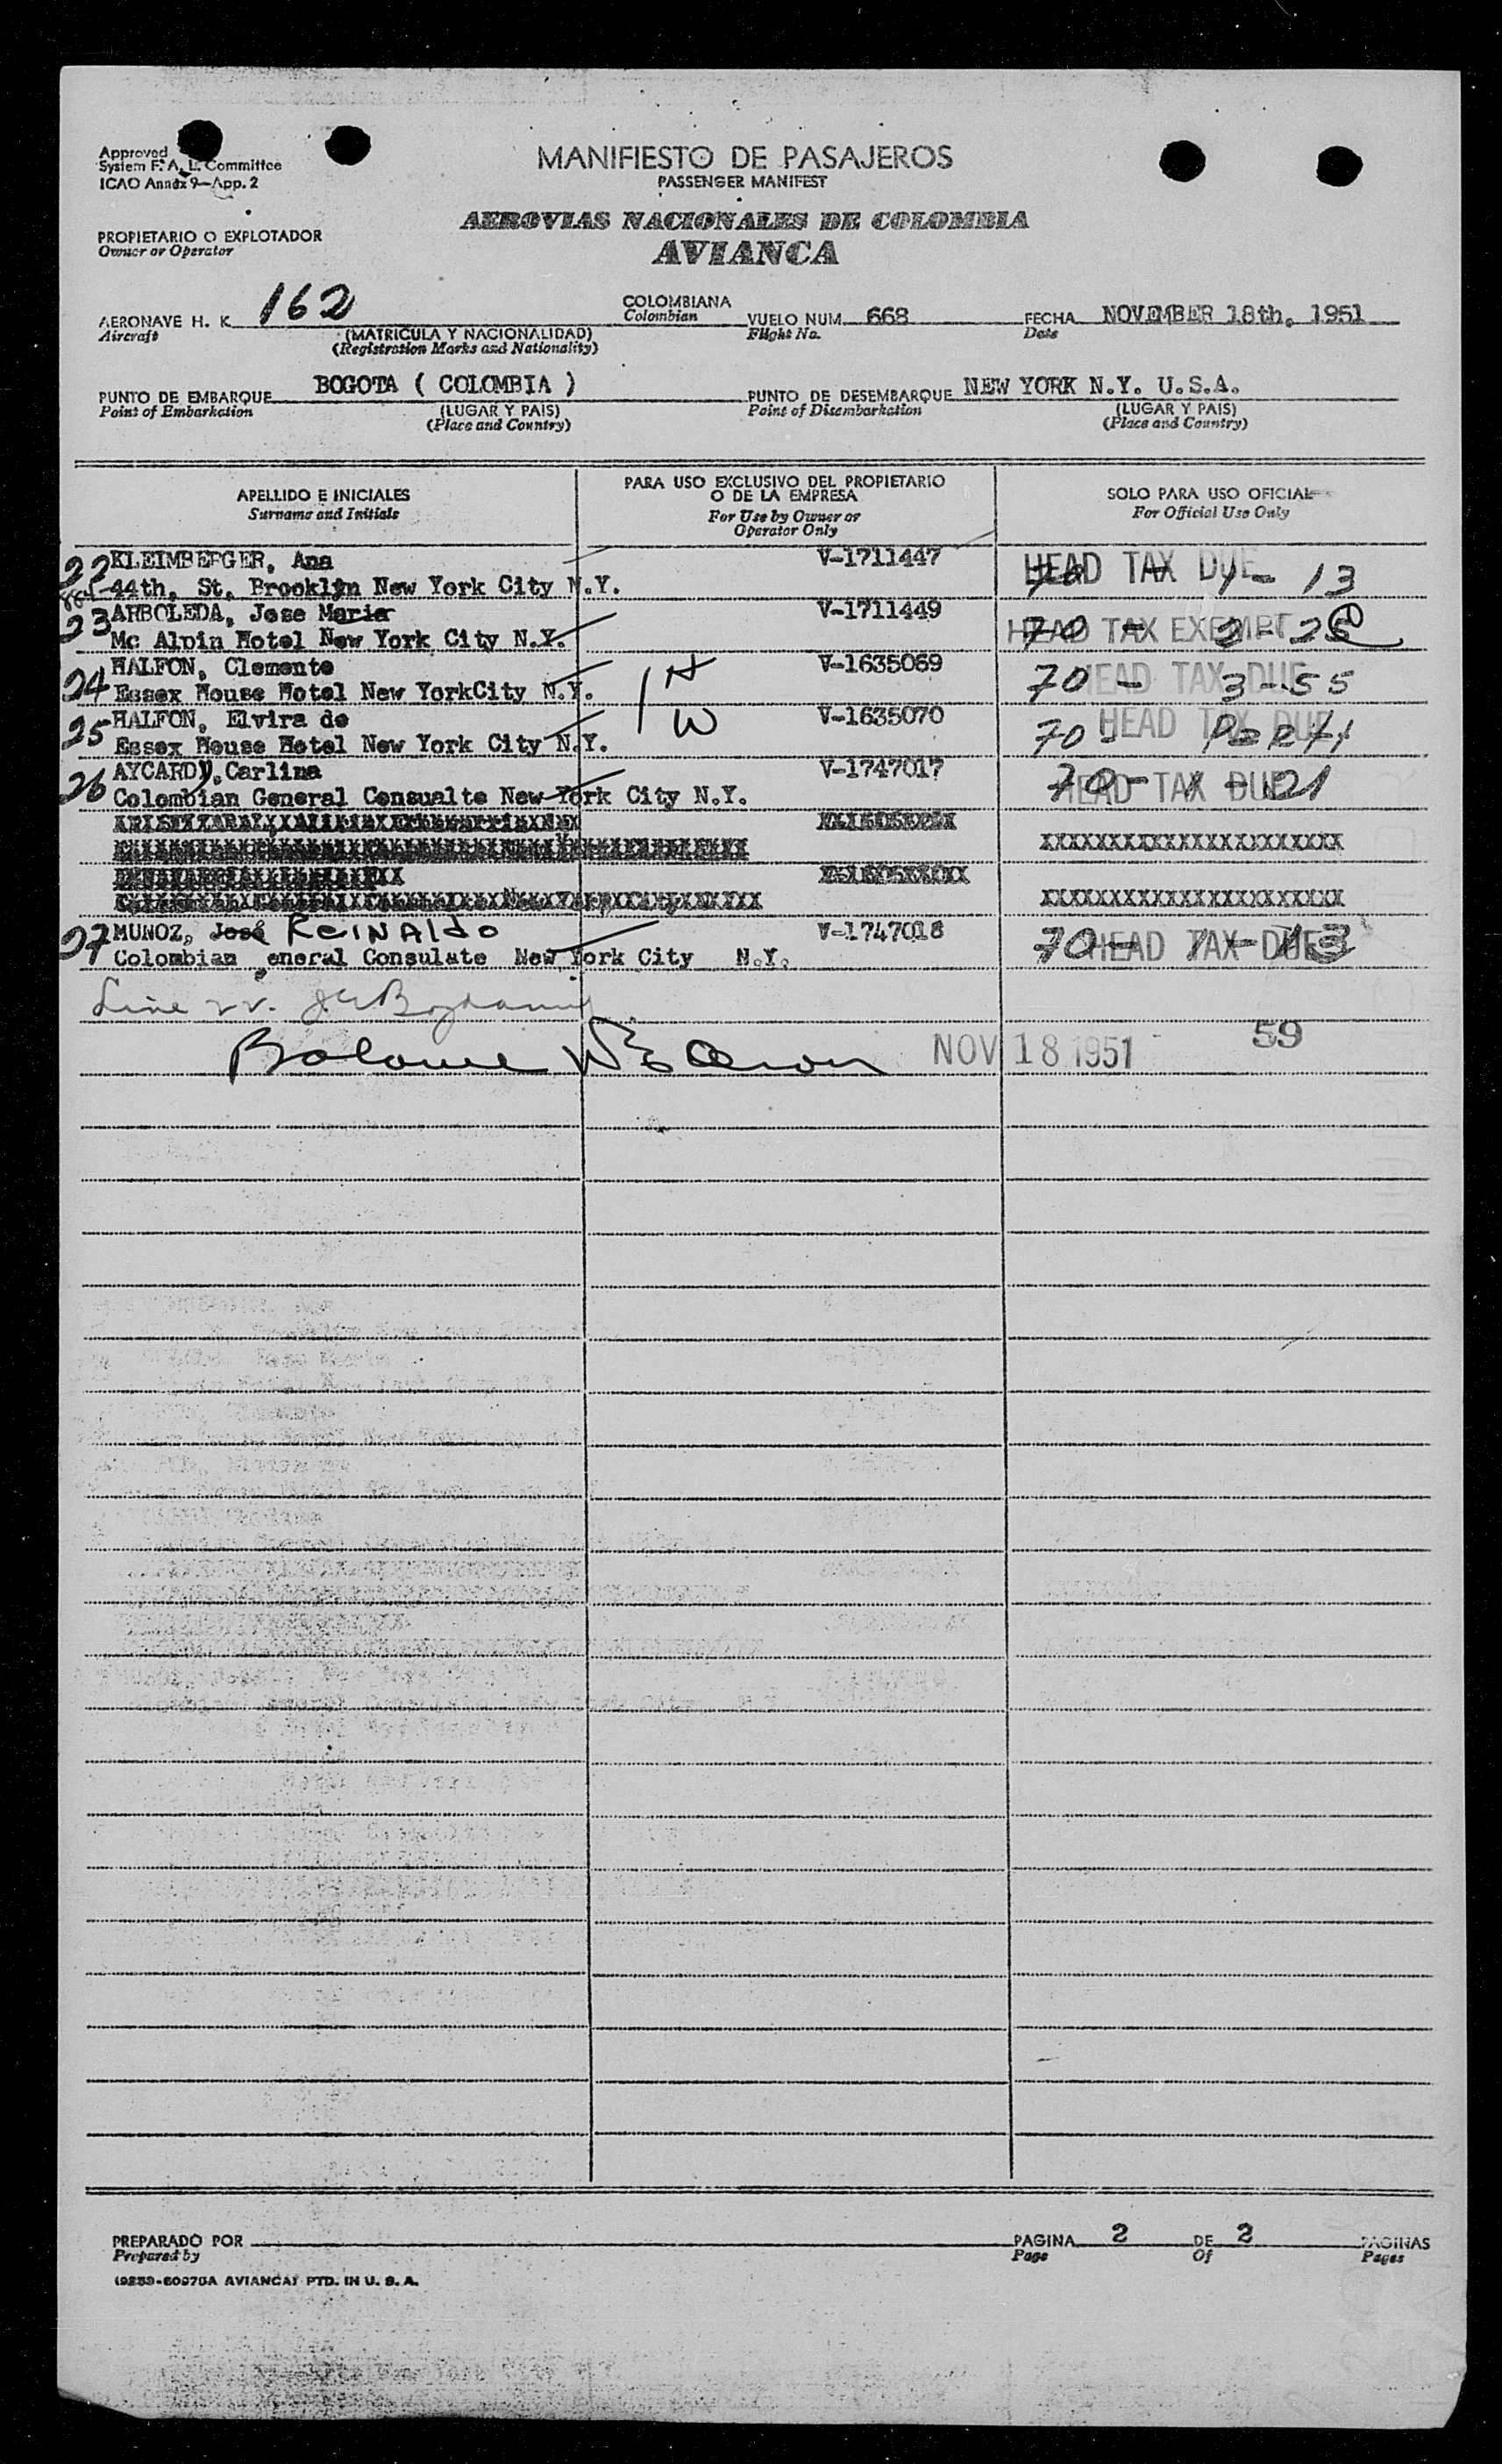 Approved
System F. A. L. Committee
ICAO Annex 9—App. 2
MANIFIESTO DE PASAJEROS
PASSENGER MANIFEST
AEROVIAS NACIONALES DE COLOMBIA
AVIANCA
PROPIETARIO O EXPLOTADOR
Owner or Operator
AERONAVE H. K. 162 COLOMBIANA VUELO NUM. 668 FECHA NOVEMBER 18th, 1951
Aircraft (MATRICULA Y NACIONALIDAD) Colombian Flight No. Date
(Registration Marks and Nationality)
PUNTO DE EMBARQUE BOGOTA ( COLOMBIA ) PUNTO DE DESEMBARQUE NEW YORK N.Y. U.S.A.
Point of Embarkation (LUGAR Y PAIS) Point of Disembarkation (LUGAR Y PAIS)
(Place and Country) (Place and Country)
APELLIDO E INICIALES PARA USO EXCLUSIVO DEL PROPIETARIO O DE LA EMPRESA SOLO PARA USO OFICIAL
Surname and Initials For Use by Owner or Operator Only For Official Use Only
22 KLEIMBERGER, Ana V-1711447 HEAD TAX DUE 70 - 1 - 13
44th, St, Brooklyn New York City N.Y.
23 ARBOLEDA, Jose Maria V-1711449 HEAD TAX EXEMPT
Mc Alpin Hotel New York City N.Y.
24 HALFON, Clemente 1 H V-1635069 HEAD TAX DUE 70 - 3-55
Essex House Hotel New YorkCity N.Y.
25 HALFON, Elvira de 1 W V-1635070 HEAD TAX DUE 70 -
Essex House Hotel New York City N.Y.
26 AYCARDY, Carlina V-1747017 HEAD TAX DUE 70 - 1 - 21
Colombian General Consualte New York City N.Y.
XXXXXXXXXXXXXXXXXXXXXX
XXXXXXXXXXXXXXXXXXXXXX
27 MUNOZ, José REINAldo V-1747018 HEAD TAX DUE 70 - 1 - 13
Colombian eneral Consulate New York City N.Y.
Line 22.
NOV 18 1951 59
PREPARADO POR PAGINA 2 DE 2 PAGINAS
Prepared by Page Of Pages
AVIANCA) PTD. IN U. S. A.